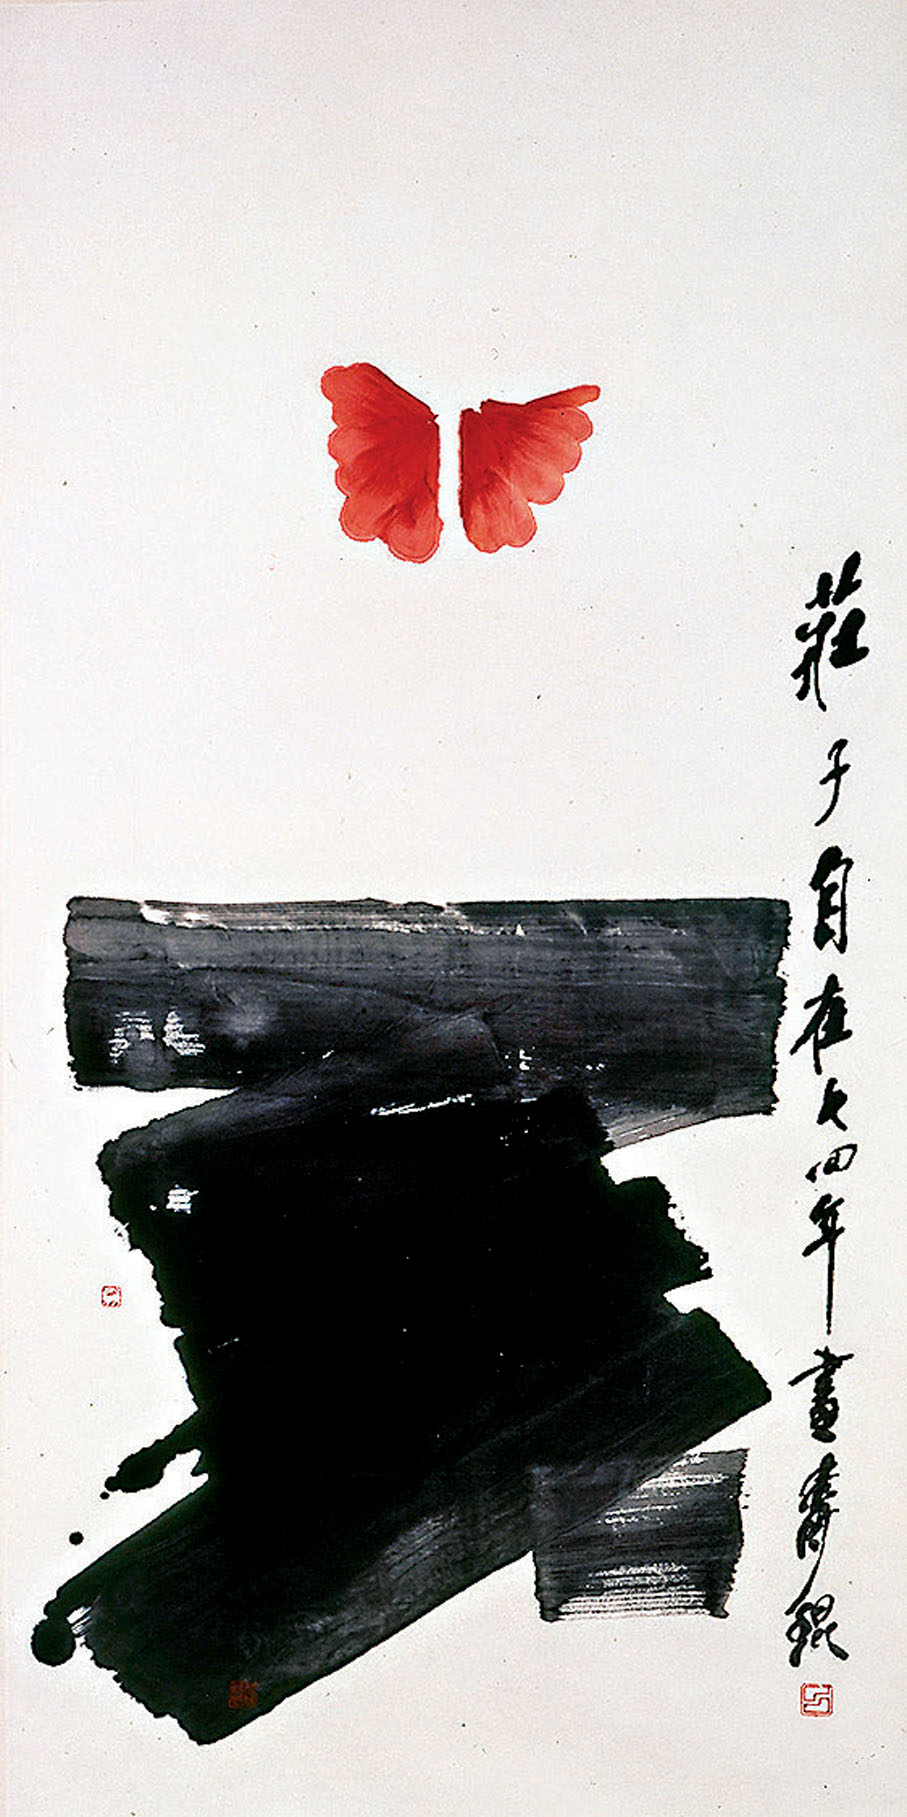 莊子自在七四年畫壽琨